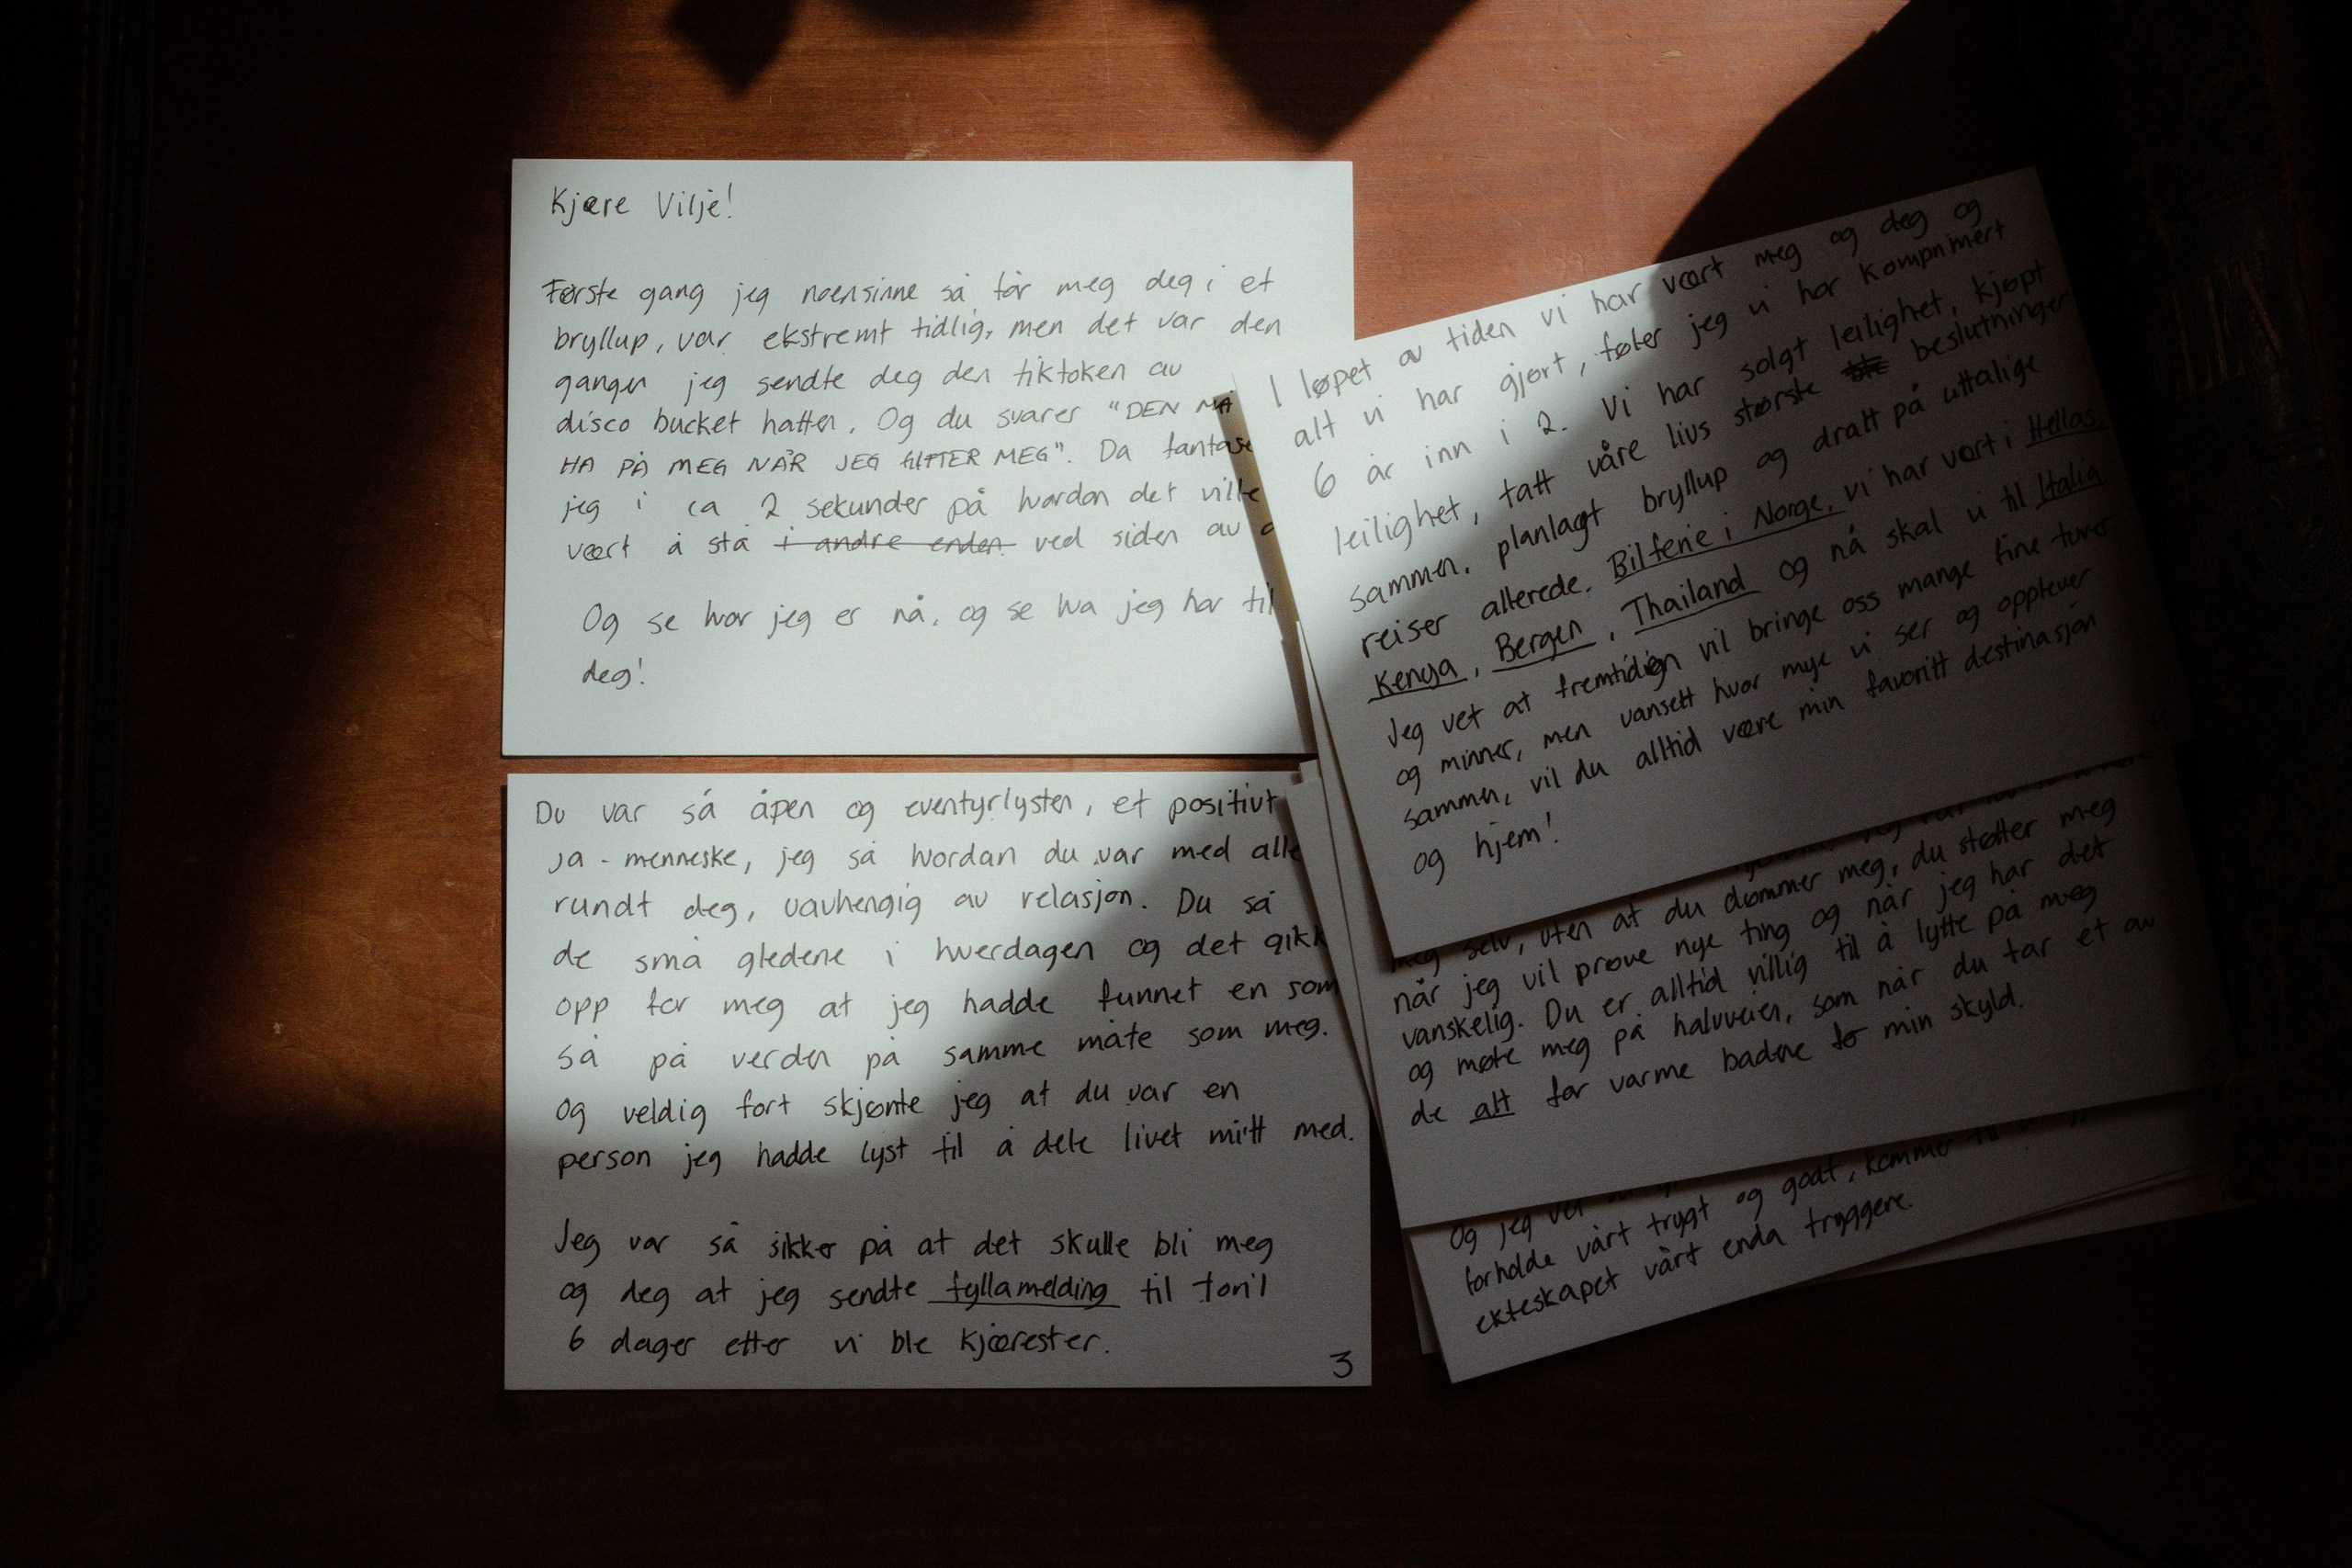 Kjære Vilje!
Første gang jeg noensinne så for meg deg i et
bryllup, var ekstremt tidlig, men det var den
gangen jeg sendte deg den tiktoken av
disco bucket hatten. Og du svarer "DEN MÅ
HA PÅ MEG NÅR JEG GIFTER MEG". Da fantase
jeg i ca 2 sekunder på hvordan det ville
vært å stå i andre enden ved siden av
Og se hvor jeg er nå, og se hva jeg har til
deg!
Du var så åpen og eventyrlysten, et positivt
ja-menneske, jeg så hvordan du var med alle
rundt deg, uavhengig av relasjon. Du så
de små gledene i hverdagen og det gikk
opp for meg at jeg hadde funnet en som
så på verden på samme måte som meg.
Og veldig fort skjønte jeg at du var en
person jeg hadde lyst til å dele livet mitt med.
Jeg var så sikker på at det skulle bli meg
og deg at jeg sendte fyllamelding til Toril
6 dager etter vi ble kjærester.
3
I løpet av tiden vi har vært meg og deg og
alt vi har gjort, føler jeg vi har komprimert
6 år inn i 2. Vi har solgt leilighet, kjøpt
leilighet, tatt våre livs største beslutninger
sammen, planlagt bryllup og dratt på uttalige
reiser allerede. Bilferie i Norge, vi har vært i Hellas,
Kenya, Bergen, Thailand og nå skal vi til Italia
Jeg vet at fremtidign vil bringe oss mange fine turer
og minner, men uansett hvor mye vi ser og opplever
sammen, vil du alltid være min favoritt destinasjon
og hjem!
meg selv, uten at du dømmer meg, du støtter meg
når jeg vil prøve nye ting og når jeg har det
vanskelig. Du er alltid villig til å lytte på meg
og møte meg på halvveien, som når du tar et av
de alt for varme badene for min skyld.
Og jeg vet
forholde vårt trygt og godt, kommer til å
ekteskapet vårt enda tryggere.